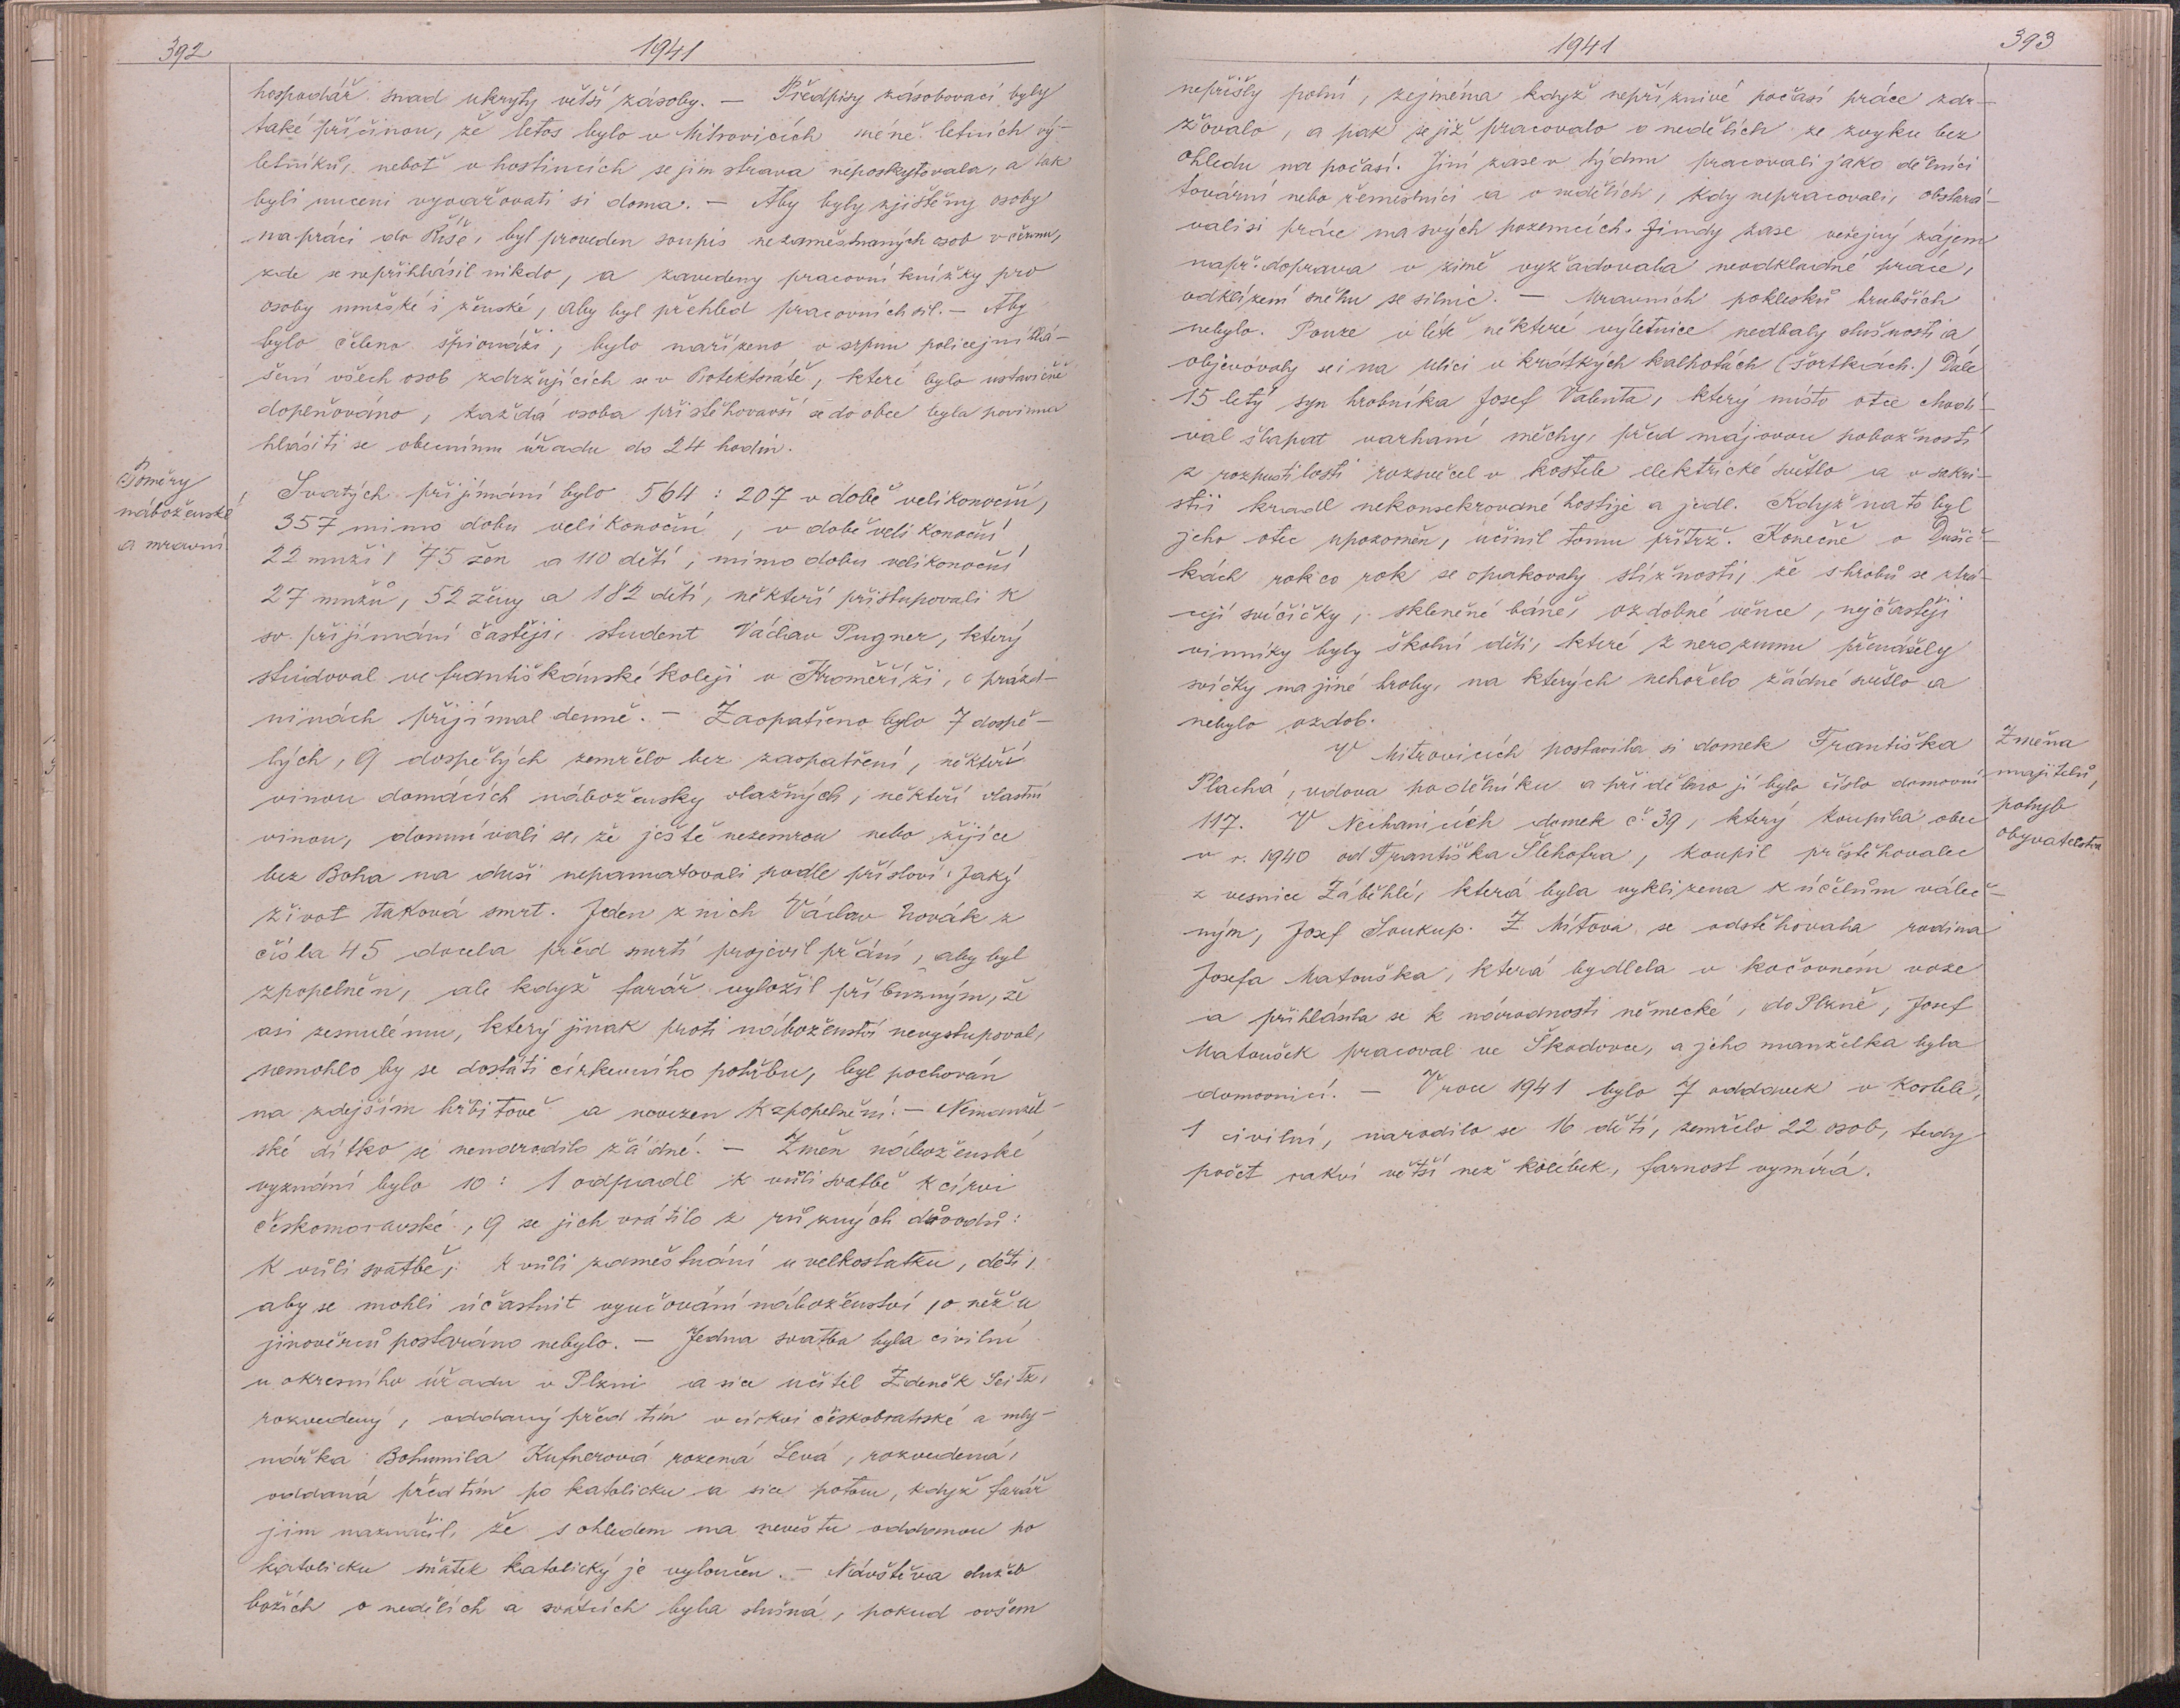 392
1941
hospodář snad ukryty větší zásoby. — Předpisy zásobovací byly
také příčinou, že letos bylo v Mitrovicích méně letních vý-
letníků, neboť v hostincích se jim strava neposkytovala, a tak
byli nuceni vyvařovati si doma. — Aby byly zjištěny osoby
na práci do Říše, byl proveden soupis nezaměstnaných osob v červnu,
zde se nepřihlásil nikdo, a zavedeny pracovní knížky pro
osoby mužské i ženské, aby byl přehled pracovních sil. — Aby
bylo čeleno špionáži, bylo nařízeno v srpnu policejní hlá-
šení všech osob zdržujících se v Protektorátě, které bylo ustavičně
doplňováno, každá osoba přistěhovavší se do obce byla povinna
hlásiti se obecnímu úřadu do 24 hodin.
Poměry
náboženské
a mravní.
Svatých přijímání bylo 564 : 207 v době velikonoční,
357 mimo dobu velikonoční, v době velikonoční
22 muži, 75 žen a 110 dětí, mimo dobu velikonoční
27 mužů, 52 ženy a 182 dětí, někteří přistupovali k
sv. přijímání častěji, student Václav Pugner, který
studoval ve františkánské koleji v Kroměříži, o prázd-
ninách přijímal denně. — Zaopatřeno bylo 7 dospě-
lých, 9 dospělých zemřelo bez zaopatření, někteří
vinou domácích nábožensky vlažných, někteří vlastní
vinou, domnívali se, že ještě nezemrou nebo žijíce
bez Boha na duši nepamatovali podle přísloví: Jaký
život taková smrt. Jeden z nich Václav Novák z
čísla 45 docela před smrtí projevil přání, aby byl
zpopelněn, ale když farář vyložil příbuzným, že
asi zesnulému, který jinak proti náboženství nevystupoval,
nemohlo by se dostáti církevního pohřbu, byl pochován
na zdejším hřbitově a nevezen k zpopelnění. — Nemanžel-
ské dítko se nenarodilo žádné. — Změn náboženské
vyznání bylo 10 : 1 odpadl k vůli svatbě k církvi
českomoravské, 9 se jich vrátilo z různých důvodů:
k vůli svatbě, k vůli zaměstnání u velkostatku, děti,
aby se mohli účastnit vyučování náboženství, o něž u
jinověrců postaráno nebylo. — Jedna svatba byla civilní
u okresního úřadu v Plzni a sice učitel Zdeněk Seitz,
rozvedený, oddaný před tím v církvi českobratrské a mly-
nářka Bohumila Kufnerová rozená Levá, rozvedená,
oddaná před tím po katolicku a sice potom, když farář
jim naznačil, že s ohledem na nevěstu oddanou po
katolicku sňatek katolický je vyloučen. — Návštěva služeb
božích o nedělích a svátcích byla slušná, pokud ovšem
1941
393
nepřišly polní, zejména když nepříznivé počasí práce zdr-
žovalo, a pak se již pracovalo o nedělích ze zvyku bez
ohledu na počasí. Jiní zase v týdnu pracovali jako dělníci
tovární nebo řemeslníci a o nedělích, kdy nepracovali, obstará-
vali si práce na svých pozemcích. Jindy zase veřejný zájem
např. doprava v zimě vyžadovala neodkladné práce,
odklízení sněhu se silnic. — Mravních poklesků hrubších
nebylo. Pouze v létě některé výletnice nedbaly slušnosti a
objevovaly se i na ulici v krátkých kalhotách (šortkách.) Dále
15 letý syn hrobníka Josef Valenta, který místo otce chodí-
val šlapat varhaní měchy, před májovou pobožností
z rozpustilosti rozsvěcel v kostele elektrické světlo a v sakri-
stii kradl nekonsekrované hostije a jedl. Když na to byl
jeho otec upozorněn, učinil tomu přítrž. Konečně o Dušič-
kách rok co rok se opakovaly stížnosti, že s hrobů se ztrá-
cejí svíčičky, skleněné báně, ozdobné věnce, nejčastěji
vinníky byly školní děti, které z nerozumu přenášely
svíčky na jiné hroby, na kterých nehořelo žádné světlo a
nebylo ozdob.
Změna
majitelů,
pohyb
obyvatelstva
V Mitrovicích postavila si domek Františka
Plachá, vdova po dělníku a přiděleno jí bylo číslo domovní
117. V Nechanicích domek č. 39, který koupila obec
v r. 1940 od Františka Šlehofra, koupil přestěhovalec
z vesnice Záběhlé, která byla vyklizena k účelům váleč-
ným, Josef Soukup. Z Mítova se odstěhovala rodina
Josefa Matouška, která bydlela v kočovném voze
a přihlásila se k národnosti německé, do Plzně, Josef
Matoušek pracoval ve Škodovce, a jeho manželka byla
domovnicí. — V roce 1941 bylo 7 oddavek v kostele,
1 civilní, narodilo se 16 dětí, zemřelo 22 osob, tedy
počet rakví větší než kolébek, farnost vymírá.